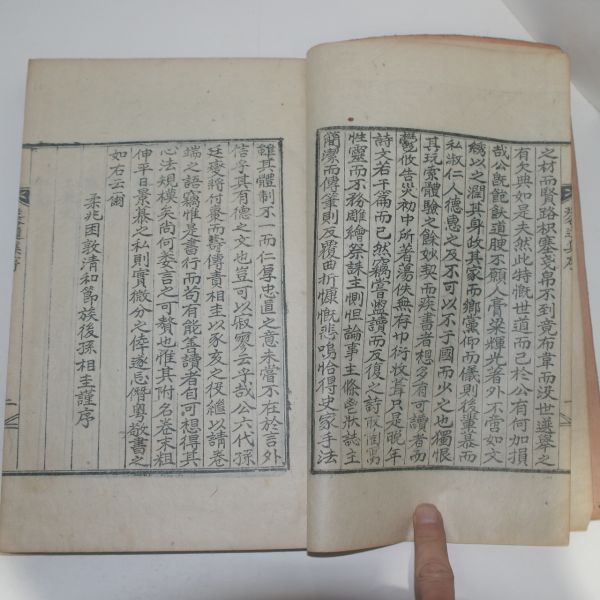 之材而賢路枳塞旌帛不到竟布韋而没世選擧之
有欠典如是夫然此特慨世道而已於公有何加損
哉公旣飽飫道腴不願人膏粱輝光著外不啻如文
綉以之潤其身政其家而鄕黨仰而儀則後輩慕而
私淑仁人德惠之及不可以不于國而少之也獨恨
其玩索體驗之餘妙契而疏書者想多有可讀者而
鬱攸告災初中所著蕩佚無存巾衍收葺只是晩年
詩文若干篇而已然竊嘗盥讀而反復之詩
性靈而不務雕繪祭誄主惻怛論事主條鬯狀誌主
簡潔而傳彙則反覆曲折慷慨悲鳴恰得史家手法
雖其體制不一而仁厚忠直之意未嘗不在於言外
信乎其有德之文也豈可以寂寥云乎哉公六代孫
廷燮將付棗而壽傳責相圭以豕亥之役繼以請卷
端之語竊惟是書行而句有能善讀者自可想得其
心法規模矣尙何待言之可贅也惟其附名卷末粗
伸平日景慕之私則實微分之倖遂忘僭粤敬書之
如右云爾
柔兆困敦淸和節族後孫相圭謹序